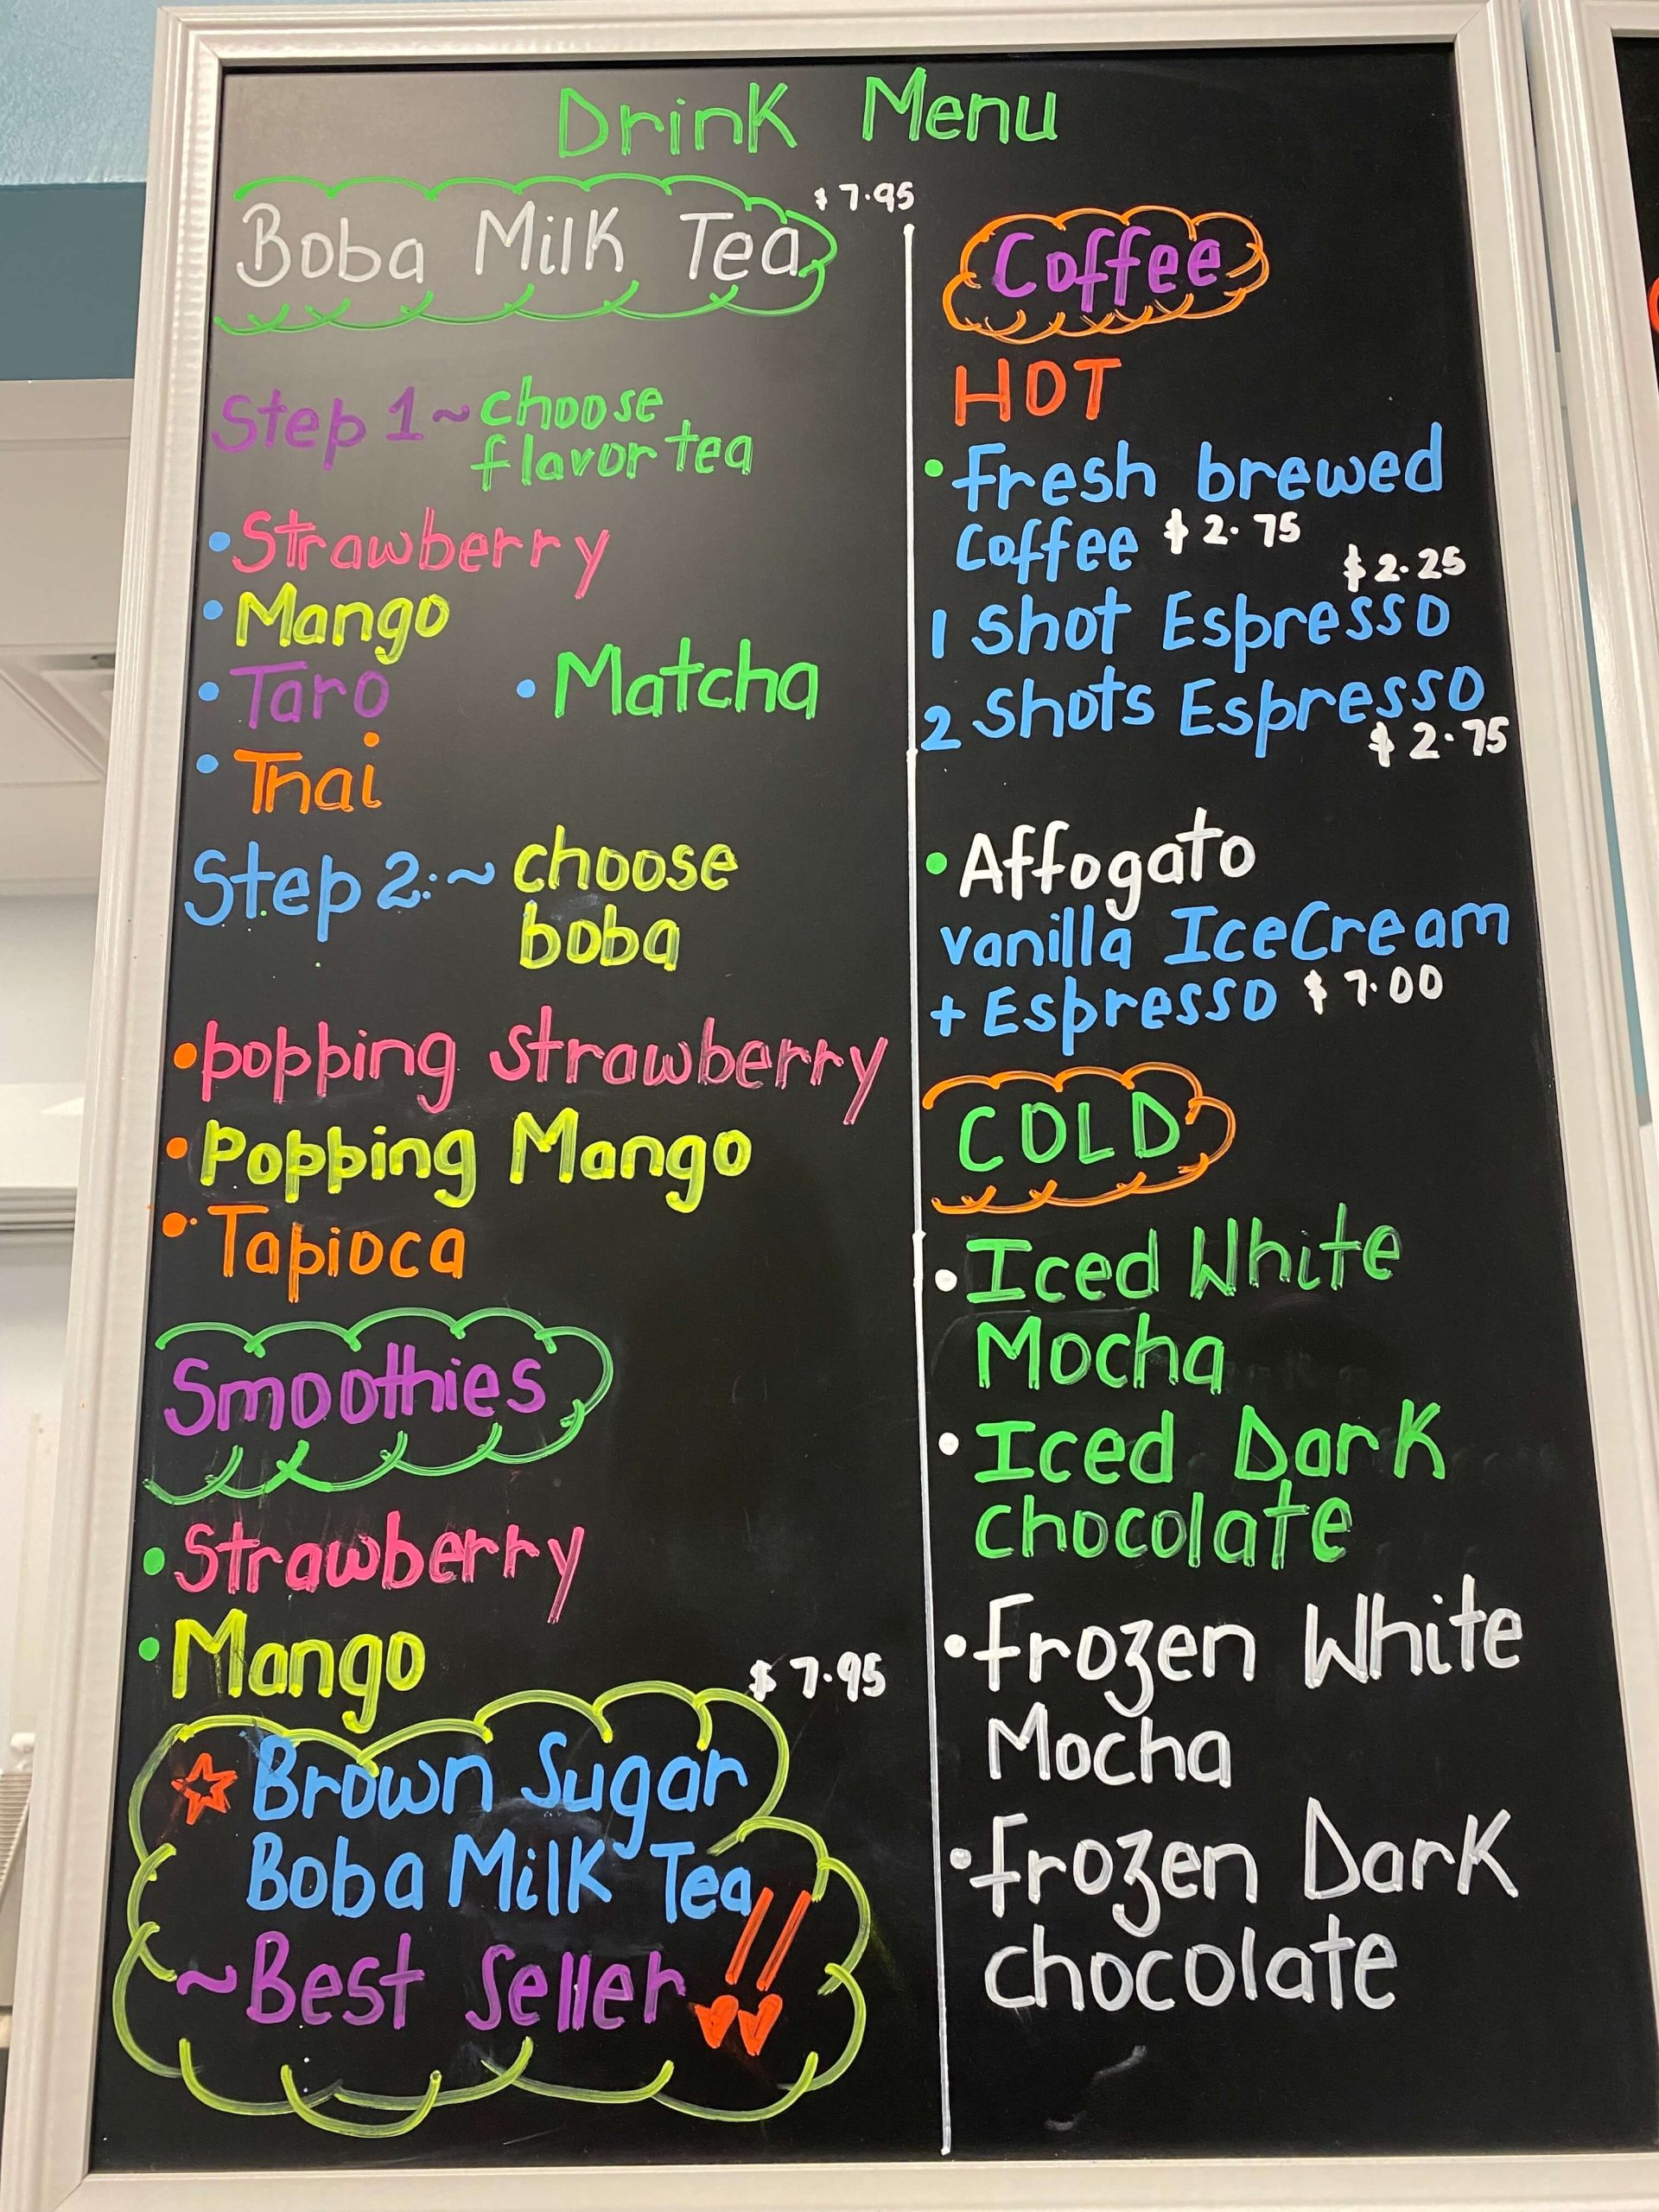 Drink Menu
$7.95
Boba Milk Tea
Step 1~ choose
flavor tea
• Strawberry
• Mango
• Taro • Matcha
• Thai
Step 2:~ choose
boba
• popping strawberry
• Popping Mango
• Tapioca
Smoothies
• Strawberry
• Mango
$7.95
Brown Sugar
Boba Milk Tea
~Best Seller!!
Coffee
HOT
• Fresh brewed
Coffee $2.75
$2.25
1 Shot Espresso
2 Shots Espresso
$2.75
• Affogato
vanilla IceCream
+ Espresso $7.00
COLD
• Iced White
Mocha
• Iced Dark
chocolate
• frozen White
Mocha
• frozen Dark
chocolate